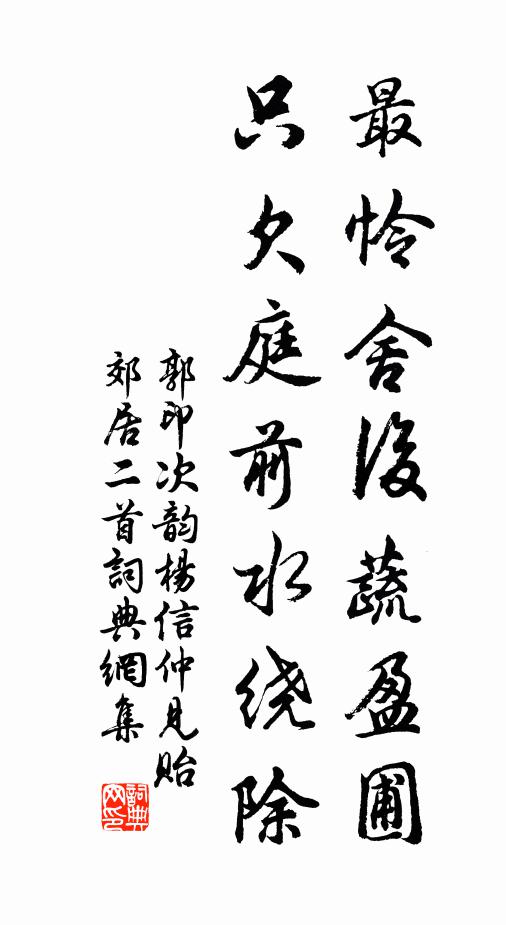 最怜舍後蔬盈圃
只欠庭前水绕除
郭印次韵楊信仲見貽
郊居二首詞典網集
詞典网印